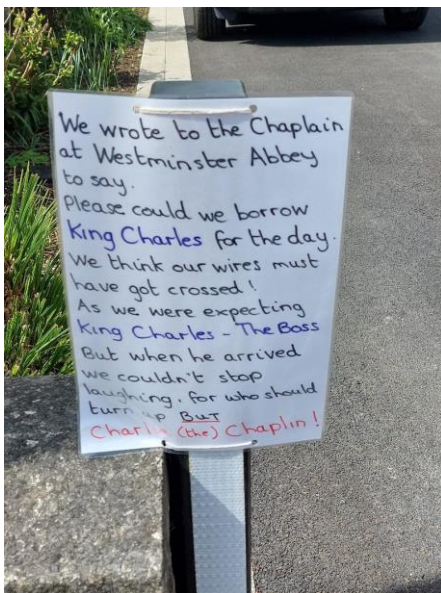 We wrote to the Chaplain
at Westminster Abbey
to say.
Please could we borrow
King Charles for the day.
We think our wires must
have got crossed!
As we were expecting
King Charles - The Boss
But when he arrived
we couldn't stop
laughing, for who should
turn up BUT
Charlie (the) Chaplin!